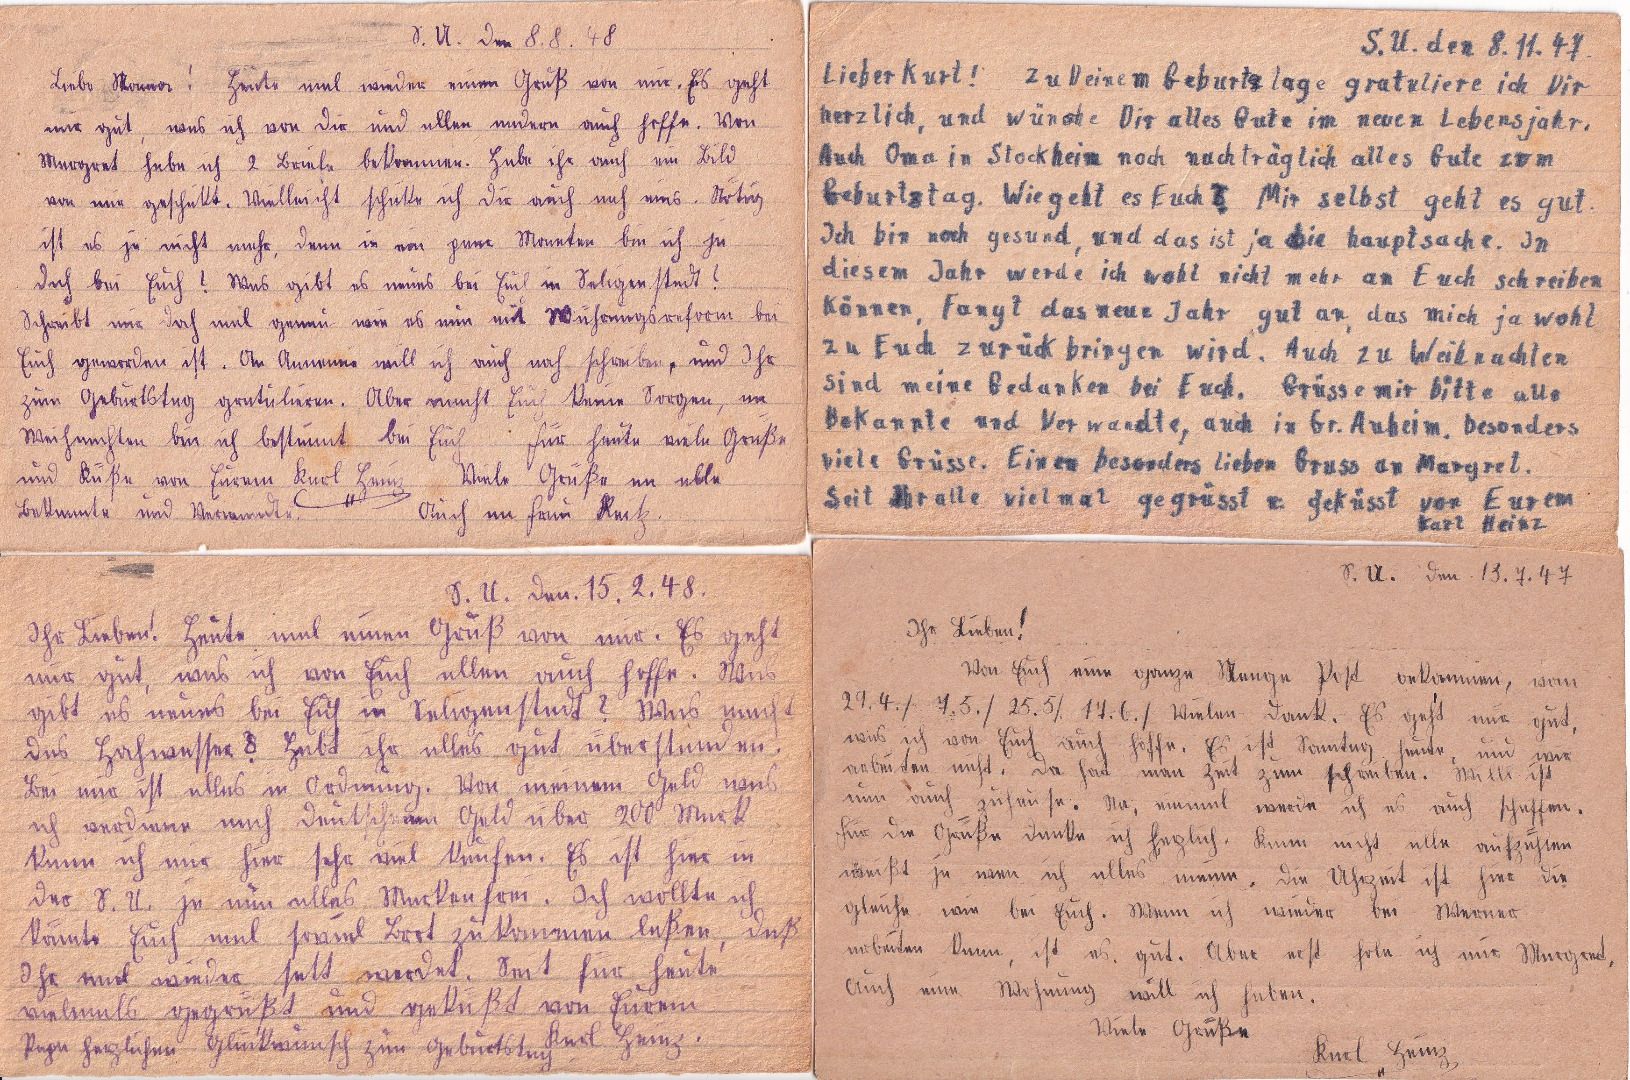 S. U. den 8.8.48
Liebe Mama! Heute mal wieder einen Gruß von mir. Es geht
mir gut, was ich von Dir und allen andern auch hoffe. Von
Margret habe ich 2 Briefe bekommen. Habe ihr auch ein Bild
von mir geschikt. Vielleicht schike ich Dir auch noch eins. Nötig
ist es ja nicht mehr, denn in ein paar Monaten bin ich ja
doch bei Euch! Was gibt es neues bei Euch in Seligenstadt?
Schreibt mir doch mal genau wie es nun mit Währungsreform bei
Euch geworden ist. An Annemie will ich auch noch schreiben, und Ihr
zum Geburtstag gratulieren. Aber macht Euch keine Sorgen, an
Weihnachten bin ich bestimmt bei Euch Für heute viele Grüße
und Küße von Eurem Karl Heinz Viele Grüße an alle
Bekannte und Verwandte. Auch an Frau
S.U. den 8.11.47.
Lieber Kurt! Zu Deinem Geburtstage gratuliere ich Dir
herzlich, und wünsche Dir alles Gute im neuen Lebensjahr.
Auch Oma in Stockheim noch nachträglich alles Gute zum
Geburtstag. Wie geht es Euch? Mir selbst geht es gut.
Ich bin noch gesund, und das ist ja die hauptsache. In
diesem Jahr werde ich wohl nicht mehr an Euch schreiben
können, Fangt das neue Jahr gut an, das mich ja wohl
zu Euch zurück bringen wird. Auch zu Weihnachten
sind meine Gedanken bei Euch. Grüsse mir bitte alle
Bekannte und Verwandte, auch in Gr. Auheim. besonders
viele Grüsse. Einen besonders lieben Gruss an Margret.
Seit Ihr alle vielmal gegrüsst u. geküsst von Eurem
Karl Heinz
S. U. den. 15.2.48.
Ihr Lieben! Heute mal einen Gruß von mir. Es geht
mir gut, was ich von Euch allen auch hoffe. Was
gibt es neues bei Euch in Seligenstadt? Was macht
das Hochwasser? Habt ihr alles gut überstanden.
Bei mir ist alles in Ordnung. Von meinem Geld was
ich verdiene nach deutschem Geld über 200 Mark
kann ich mir hier sehr viel kaufen. Es ist hier in
der S. U. ja nun alles Markenfrei. Ich wollte ich
könnte Euch mal soviel Brot zukommen laßen, daß
Ihr mal wieder satt werdet. Seit für heute
vielmals gegrüßt und geküßt von Eurem
Papa herzlichen Glückwunsch zum Geburtstag Karl Heinz.
S. U. den 13.7.47
Ihr Lieben!
Von Euch eine ganze Menge Post bekommen, vom
29.4./ 7.5./ 25.5/ 17.6./ Vielen Dank. Es geht mir gut,
was ich von Euch auch hoffe. Es ist Sonntag heute, und wir
arbeiten nicht. Da hat man Zeit zum schreiben. Willi ist
nun auch zuhause. Na, einmal werde ich es auch schaffen.
Für die Grüße danke ich herzlich. Kann nicht alle aufzählen
weißt ja wen ich alles meine. Die Uhrzeit ist hier die
gleiche wie bei Euch. Wenn ich wieder bei Werner
arbeiten kann, ist es gut. Aber erst hole ich mir Margret,
Auch eine Wohnung will ich haben.
Viele Grüße
Karl Heinz